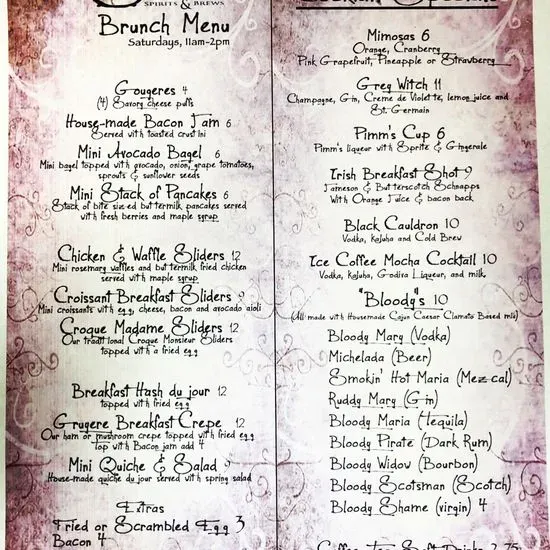 SPIRITS & BREWS
Brunch Menu
Saturdays, 11am-2pm
Gougeres 4
(4) Savory cheese puffs
House-made Bacon Jam 6
Served with toasted crustini
Mini Avocado Bagel 6
Mini bagel topped with avocado, onion, grape tomatoes,
sprouts & sunflower seeds
Mini Stack of Pancakes 6
Stack of bite sized buttermilk pancakes served
with fresh berries and maple syrup
Chicken & Waffle Sliders 12
Mini rosemary waffles and buttermilk fried chicken
served with maple syrup
Croissant Breakfast Sliders 9
Mini croissants with egg, cheese, bacon and avocado aioli
Croque Madame Sliders 12
Our traditional Croque Monsieur Sliders
topped with a fried egg
Breakfast Hash du jour 12
topped with fried egg
Gruyere Breakfast Crepe 12
Our ham or mushroom crepe topped with fried egg
Top with Bacon jam add 4
Mini Quiche & Salad 9
House-made quiche du jour served with spring salad
Extras
Fried or Scrambled Egg 3
Bacon 4
Mimosas 6
Orange, Cranberry
Pink Grapefruit, Pineapple or Strawberry
Greg Witch 11
Champagne, Gin, Creme de Violette, lemon juice and
St. Germain
Pimm's Cup 6
Pimm's liqueur with Sprite & Gingerale
Irish Breakfast Shot 9
Jameson & Butterscotch Schnapps
With Orange Juice & bacon back
Black Cauldron 10
Vodka, Kaluha and Cold Brew
Ice Coffee Mocha Cocktail 10
Vodka, Kaluha, Godiva Liqueur, and milk
"Bloody"s 10
(All made with Housemade Cajun Caesar Clamato Based mix)
Bloody Mary (Vodka)
Michelada (Beer)
Smokin' Hot Maria (Mezcal)
Ruddy Mary (Gin)
Bloody Maria (Tequila)
Bloody Pirate (Dark Rum)
Bloody Widow (Bourbon)
Bloody Scotsman (Scotch)
Bloody Shame (virgin) 4
Coffee, Tea, Soft Drinks 2.75